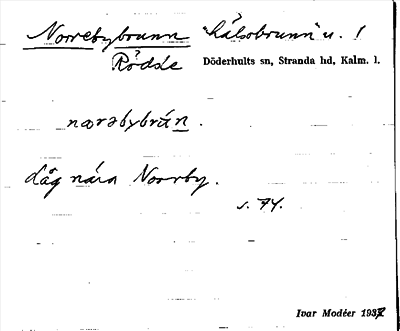 Norrebybrunn "hälsobrunn" u. 1
Rödsle Döderhults sn, Stranda hd, Kalm. l.
nærəbybrán.
Låg nära Norrby.
s. 74.
Ivar Modéer 1937